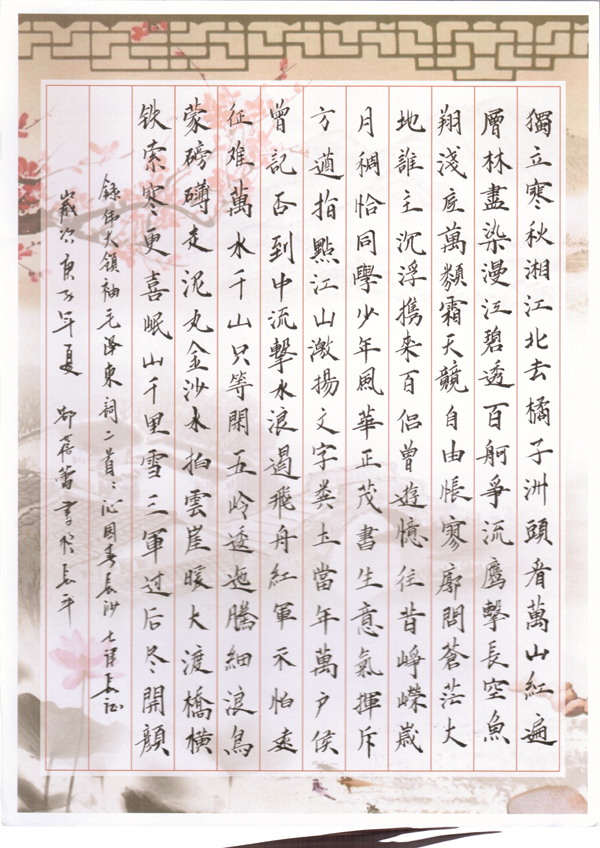 獨立寒秋湘江北去橘子洲頭看萬山紅遍
層林盡染漫江碧透百舸爭流鷹擊長空魚
翔淺底萬類霜天競自由悵寥廓問蒼茫大
地誰主沉浮携来百侣曾遊憶往昔崢嶸嵗
月稠恰同學少年風華正茂書生意氣揮斥
方遒指點江山激揚文字粪土當年萬户侯
曾記否到中流擊水浪遏飛舟紅軍不怕遠
征难萬水千山只等閑五岭逶迤騰細浪烏
蒙磅礴走泥丸金沙水拍雲崖暖大渡橋横
铁索寒更喜岷山千里雪三軍过后尽開顏
録伟大領袖毛泽東词二首：沁园春長沙 七律長征
嵗次庚子年夏 蓓蕾書於長平